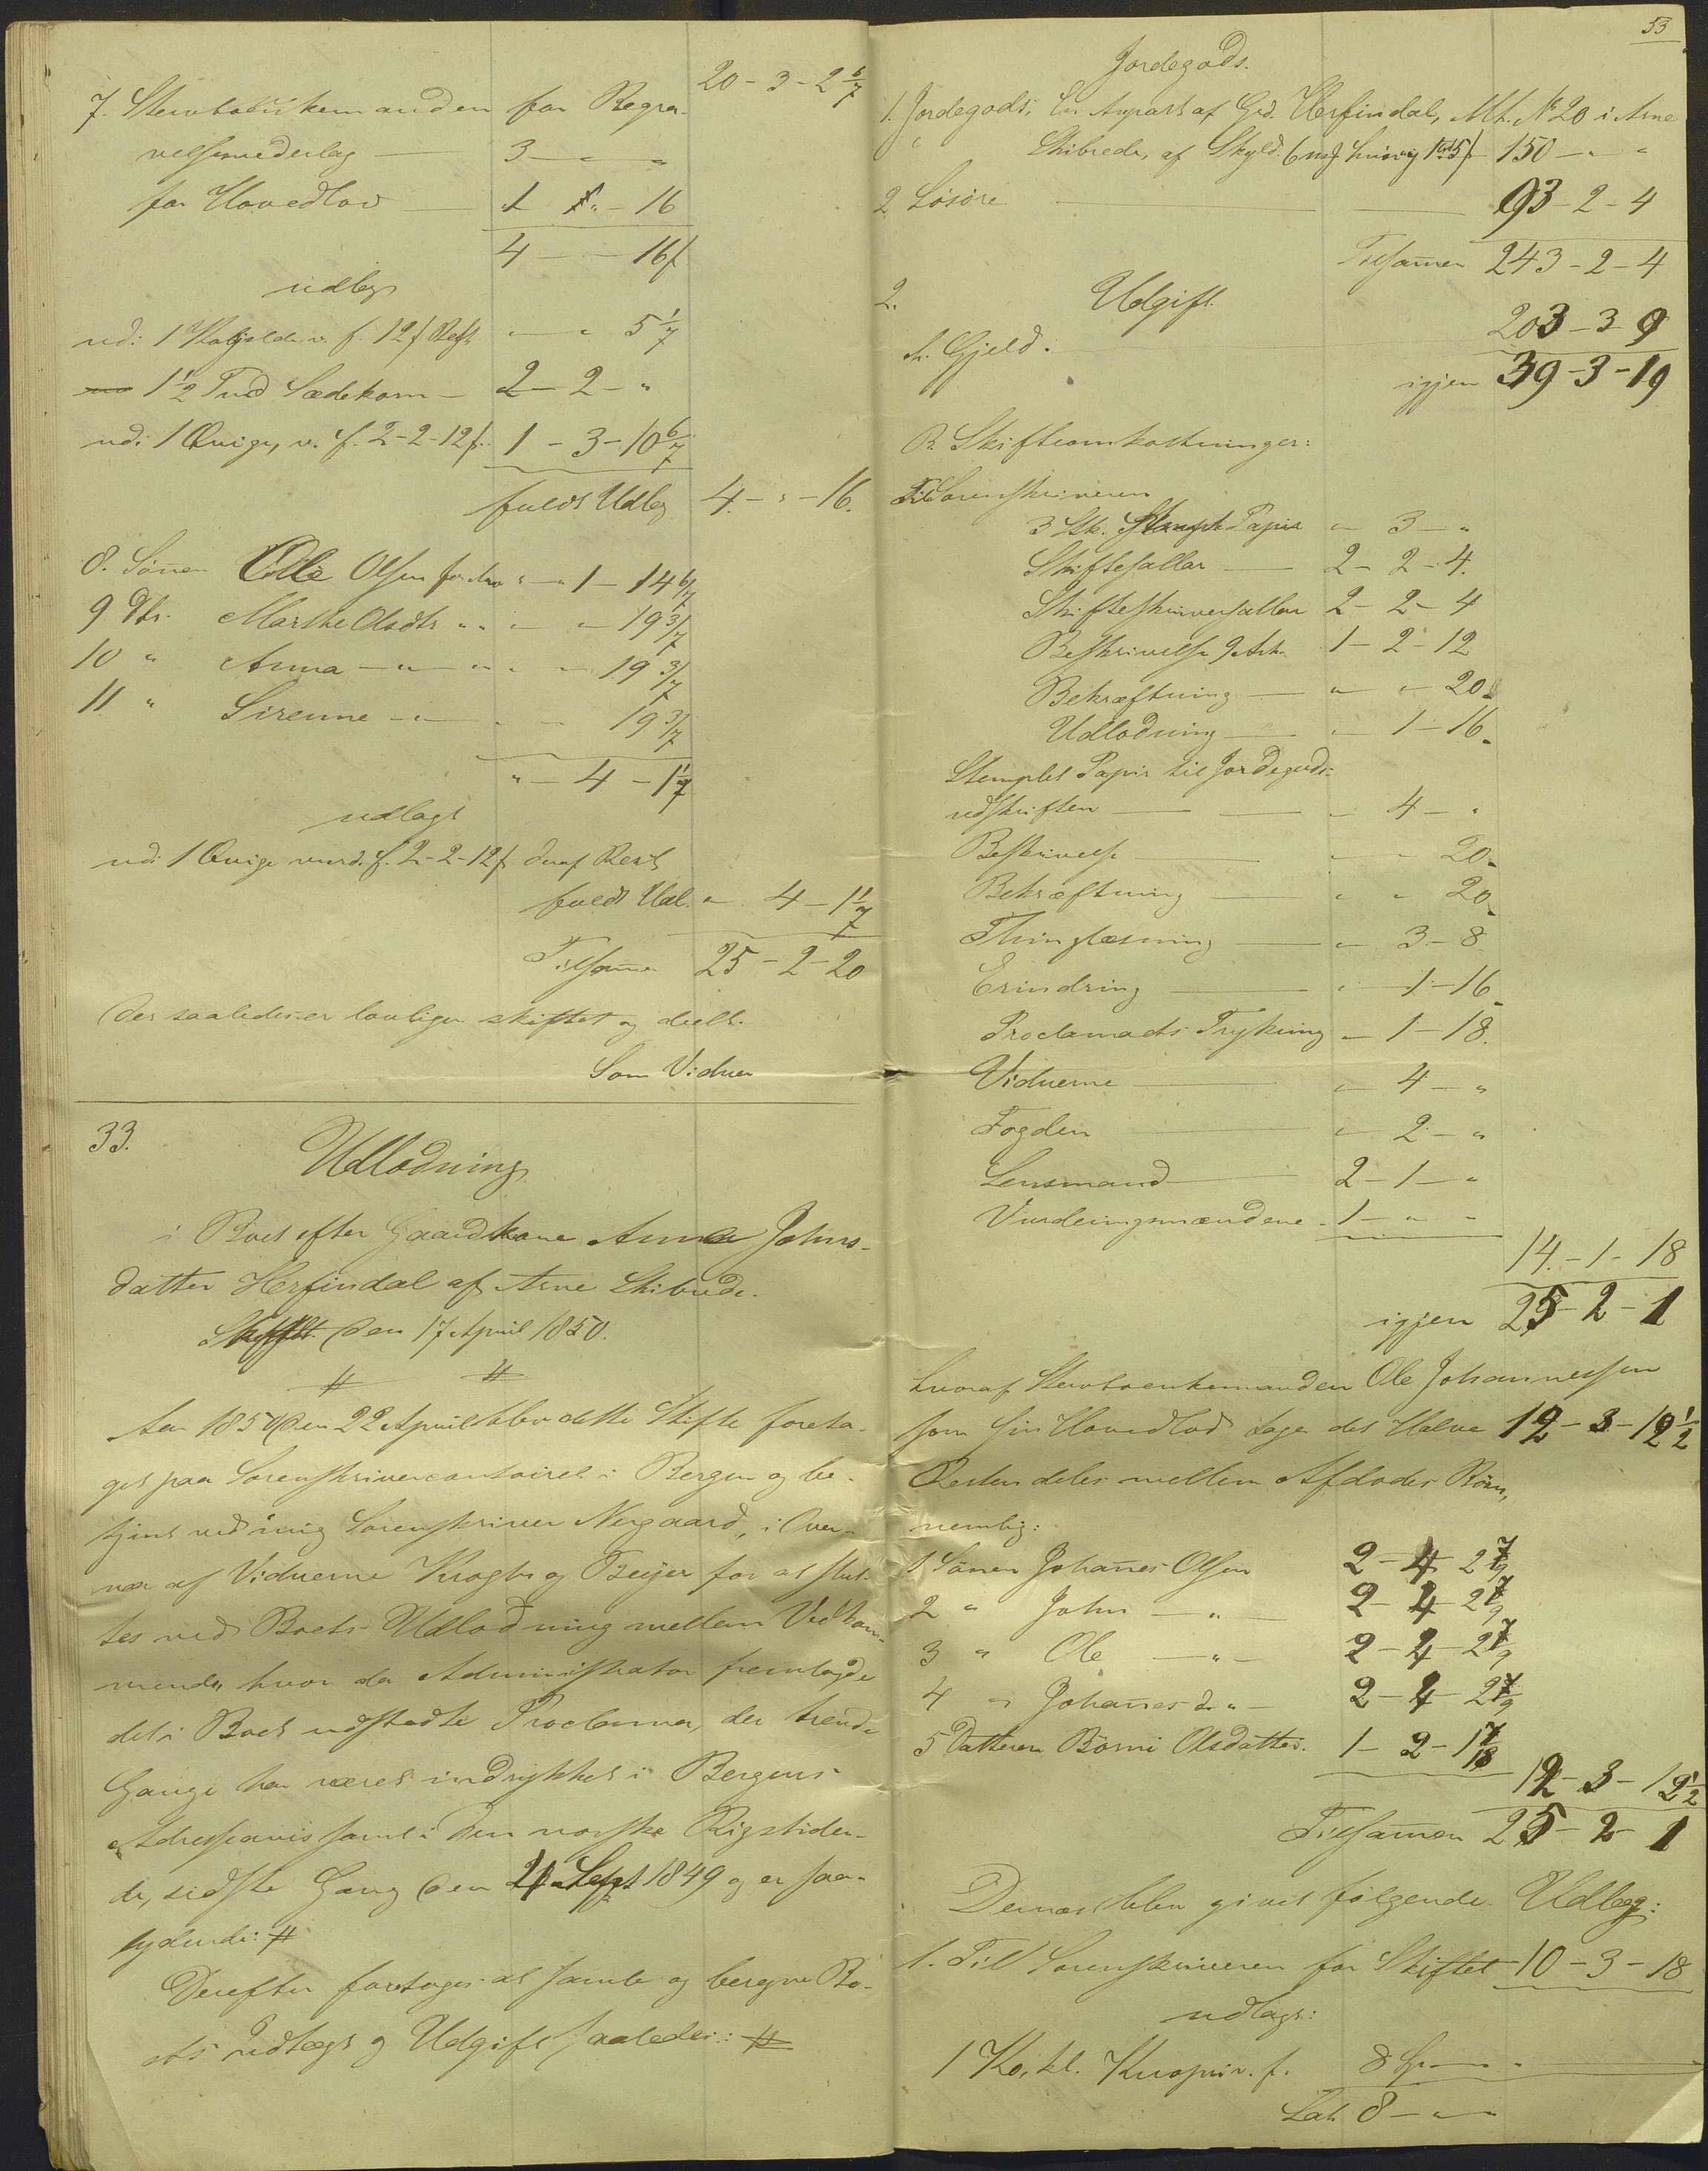 20 - 3 - 2 6/7
7. Stervboenkemanden for Begra-
velsesvederlag — 3 - " - "
for Hovedlod — 1 " - 16
4 - - 16 f
udlagt
ud: 1 v. f. 12 f Rest " - " 5 1/7
1 1/2 Tnd Sædekorn — 2 - 2 - "
ud: 1 Qvige, v. f. 2-2-12 f. 1 - 3 - 10 6/7
fuldt Udlæg 4 - " - 16.
8. Sönen Ole Olsen " - 1 - 14 6/7
9 Dtr. Marthe Olsdtr " " - - 19 3/7
10 " Anna - " - " " - 19 3/7
11 " Sirenne - " - - - 19 3/7
" - 4 - 1 1/7
udlagt
ud: 1 Qvige vurd. f. 2-2-12 f deraf Rest
fuldt Udl. " - 4 - 1 1/7
Tilsamen 25 - 2 - 20
Der saaledes er lovligen skiftet og deelt.
Som Vidner
33.
Udlodning
i Boet efter Gaardkone Anna Johns-
datter Herfindal af Arne Skibrede.
den 17 April 1850.
# #
Aar 1850 den 22 April blev dette Skifte foreta-
get paa Sorenskrivercontoiret i Bergen og be-
tjent ved mig Sorenskriver Nergaard, i Over-
vær af Vidnerne Krogh og Beyer for at slut-
tes ved Boets Udlodning mellem Vedkom-
mende, hvor da Administrator fremlagde
det i Boet udstedte Proclama, der trende
Gange har været indrykket i Bergens
Adresseavis samt i Den norske Rigstiden-
de, sidste Gang den 21 Sept 1849 og er saa-
lydende: #
Derefter foretoges at samle og beregne Bo-
ets Indtægt og Udgift saaledes: #
53
Jordegods.
1. Jordegods, en Anpart af Grd. Herfindal, Mt. No 20 i Arne
" Skibrede, af Skyld 150 - " - "
2 Lösöre — 93 - 2 - 4
Tilsamen 243 - 2 - 4
2. Udgift.
A. Gjeld. — 203 - 3 - 9
igjen 39 - 3 - 19
B. Skifteomkostninger:
Til Sorenskriveren
3 Stk. Stemplt Papir " - 3 - "
Skiftesallar — 2 - 2 - 4.
Skifteskriversallar 2 - 2 - 4
Beskrivelse 9 Ark. 1 - 2 - 12
Bekræftning — " - " - 20
Udlodning — " - 1 - 16
Stemplet Papir til Jordegods-
udskriften — — " - 4 - "
Beskrivelse — " - " - 20
Bekræftning — " - " 20
Thinglæsning — " - 3 - 8
Erindring — " - 1 - 16
Proclamaets Trykning " - 1 - 18.
Vidnerne — " - 4 - "
Fogden — " - 2 - "
Lensmand — 2 - 1 - "
Vurderingsmændene - 1 - " - "
14. - 1 - 18
igjen 25 - 2 - 1
hvoraf Stervboenkemanden Ole Johannessen
som sin Hovedlod tager det Halve 12 - 3 - 12 1/2
Resten deles mellem Afdødes Börn,
nemlig:
1 Sönen Johanes Olsen 2 - 4 - 2 7/9
2 " John — " — 2 - 4 - 2 7/9
3 " Ole — " — 2 - 4 - 2 7/9
4 " Johanes d. " — 2 - 4 - 2 7/9
5 Datteren Börni Olsdatter. 1 - 2 - 1 7/18
12 - 3 - 12 1/2
Tilsammen 25 - 2 - 1
Dernæst blev givet følgende Udlæg:
1. Til Sorenskriveren for Skiftet 10 - 3 - 18
udlagt:
1 Ko, kl. v. f. 8 -
Lat. 8 - " -